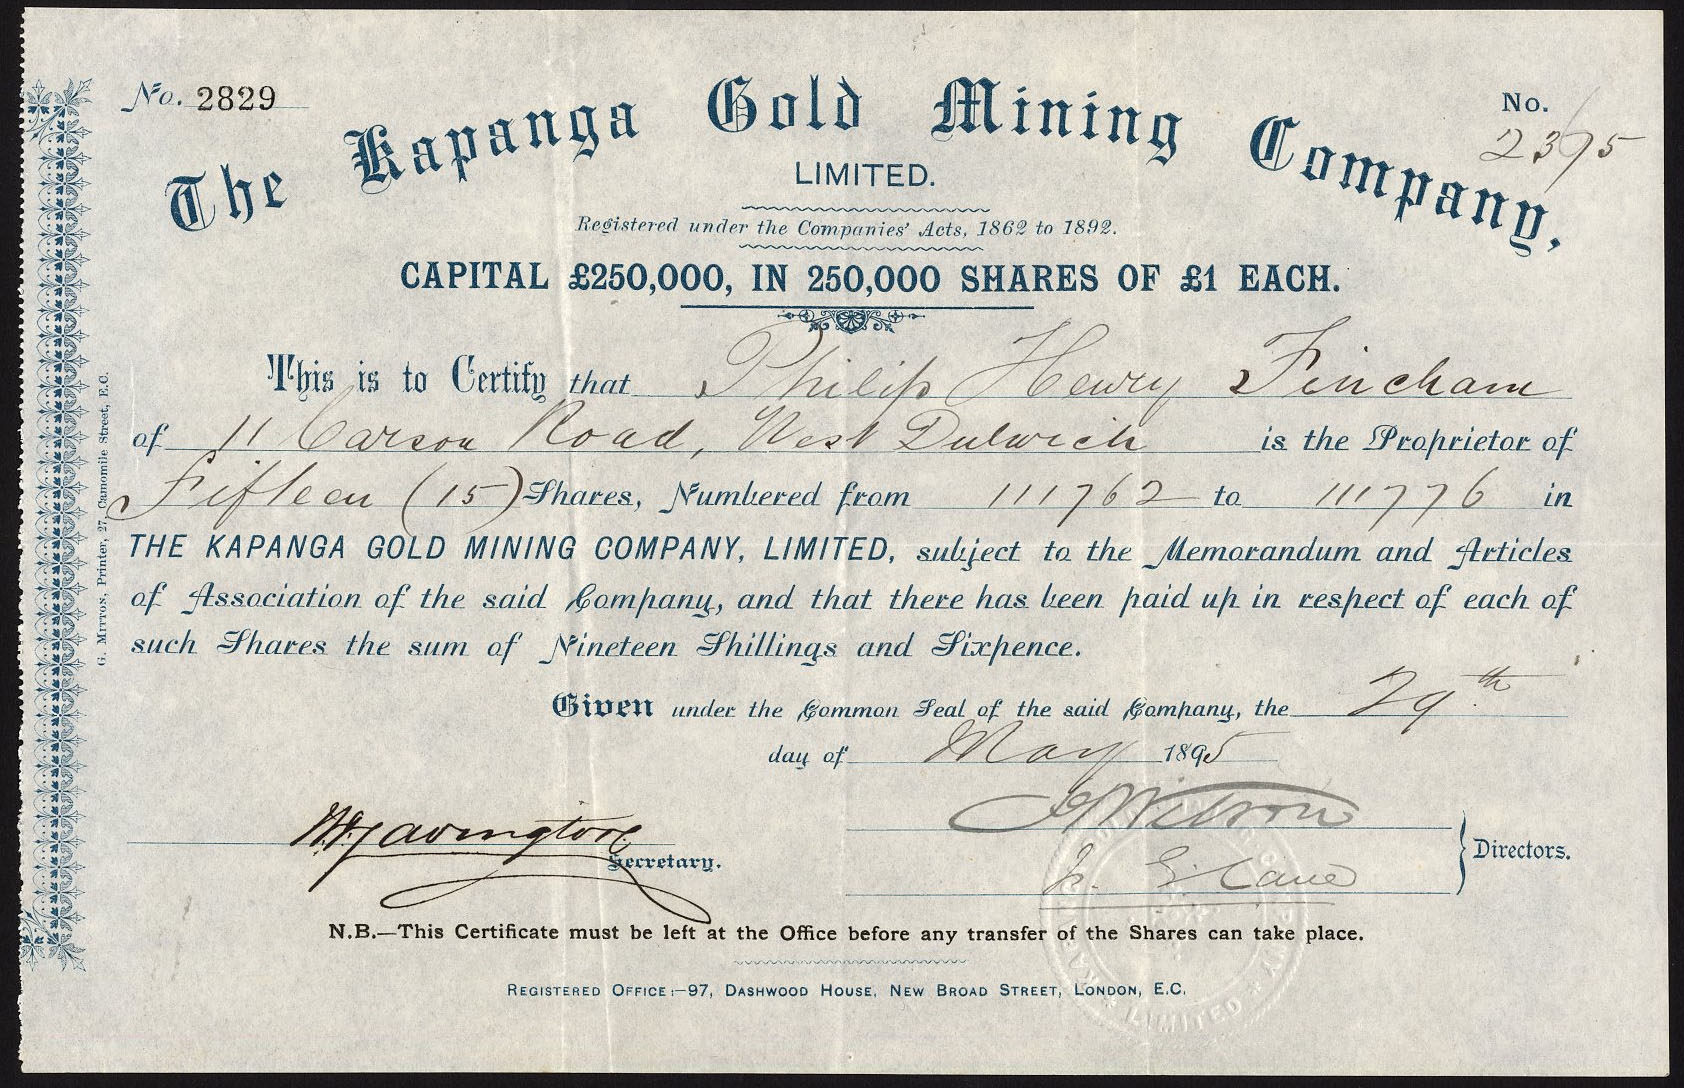 No. 2829
No.
2395
The Kapanga Gold Mining Company,
LIMITED.
Registered under the Companies' Acts, 1862 to 1892.
CAPITAL £250,000, IN 250,000 SHARES OF £1 EACH.
This is to Certify that Philip Henry Fincham
of 11 Carson Road, West Dulwich is the Proprietor of
Fifteen (15) Shares, Numbered from 111762 to 111776 in
THE KAPANGA GOLD MINING COMPANY, LIMITED, subject to the Memorandum and Articles
of Association of the said Company, and that there has been paid up in respect of each of
such Shares the sum of Nineteen Shillings and Sixpence.
Given under the Common Seal of the said Company, the 29th
day of May 1895
Wilson
Secretary.
J. E. Cane
Directors.
N.B.—This Certificate must be left at the Office before any transfer of the Shares can take place.
REGISTERED OFFICE:—97, DASHWOOD HOUSE, NEW BROAD STREET, LONDON, E.C.
LIMITED
Printer, 27, Camomile Street, E.C.